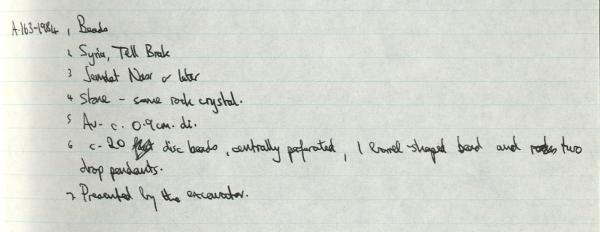 A.163-1984, Beads
2 Syria, Tell Brak
3 Jemdet Nasr or later
4 Stone - some rock crystal.
5 Av. c. 0.9cm. di.
6 c. 20 disc beads, centrally perforated, 1 barrel-shaped bead and two
drop pendants.
7 Presented by the excavator.